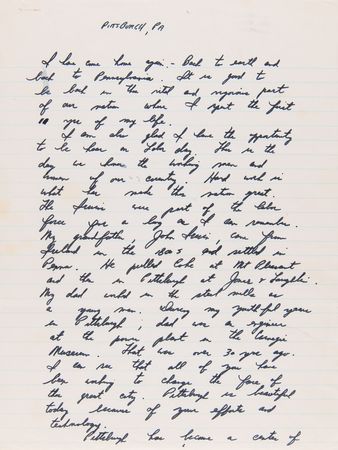 PITTSBURGH, PA
I have come home again - Back to earth and
back to Pennsylvania. It is good to
be back in the vital and vigorous part
of our nation where I spent the first
10 yrs of my life.
I am also glad I have the opportunity
to be here on Labor day. This is the
day we honor the working men and
women of our country. Hard work is
what has made this nation great.
The Irwins were part of the labor
force for a long as I can remember.
My grandfather, John Irwin, came from
Ireland in the 80s and settled in
Penna. He pulled Coke at Mt Pleasant
and then in Pittsburgh at Jones & Laughlin.
My dad worked in the steel mills as
a young man. During my youthful years
in Pittsburgh, dad was an engineer
at the power plant in the Carnegie
Museum. That was over 30 yrs ago.
I can see that all of you have
been working to change the face of
the great city. Pittsburgh is beautiful
today because of your efforts and
technology.
Pittsburgh has become a center of